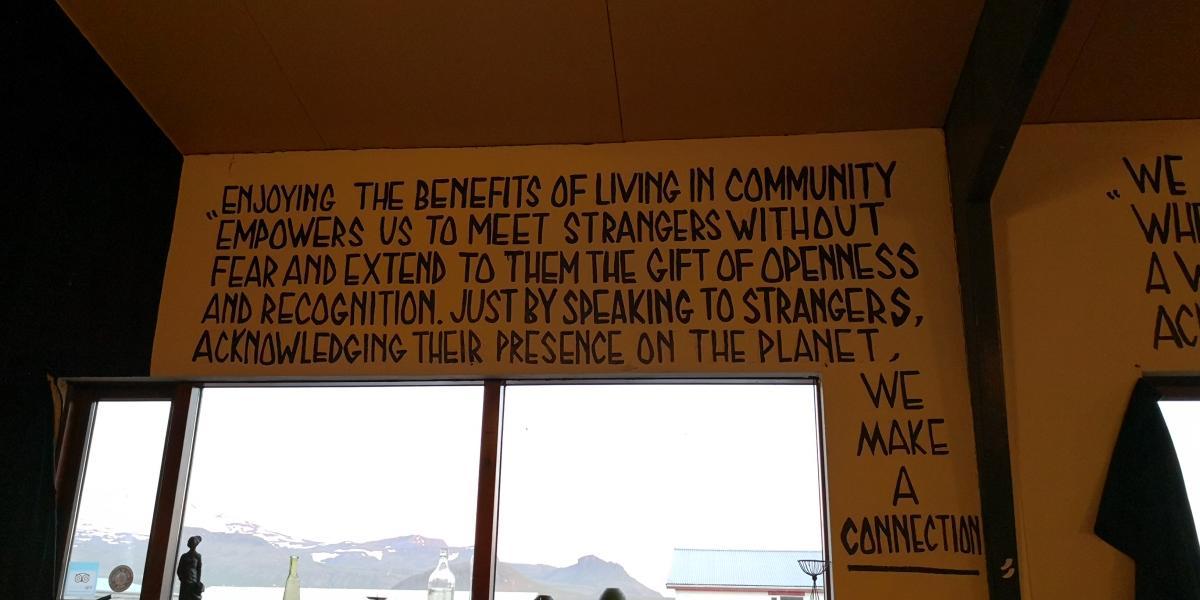 „ENJOYING THE BENEFITS OF LIVING IN COMMUNITY
EMPOWERS US TO MEET STRANGERS WITHOUT
FEAR AND EXTEND TO THEM THE GIFT OF OPENNESS
AND RECOGNITION. JUST BY SPEAKING TO STRANGERS,
ACKNOWLEDGING THEIR PRESENCE ON THE PLANET,
WE
MAKE
A
CONNECTION
„WE
A